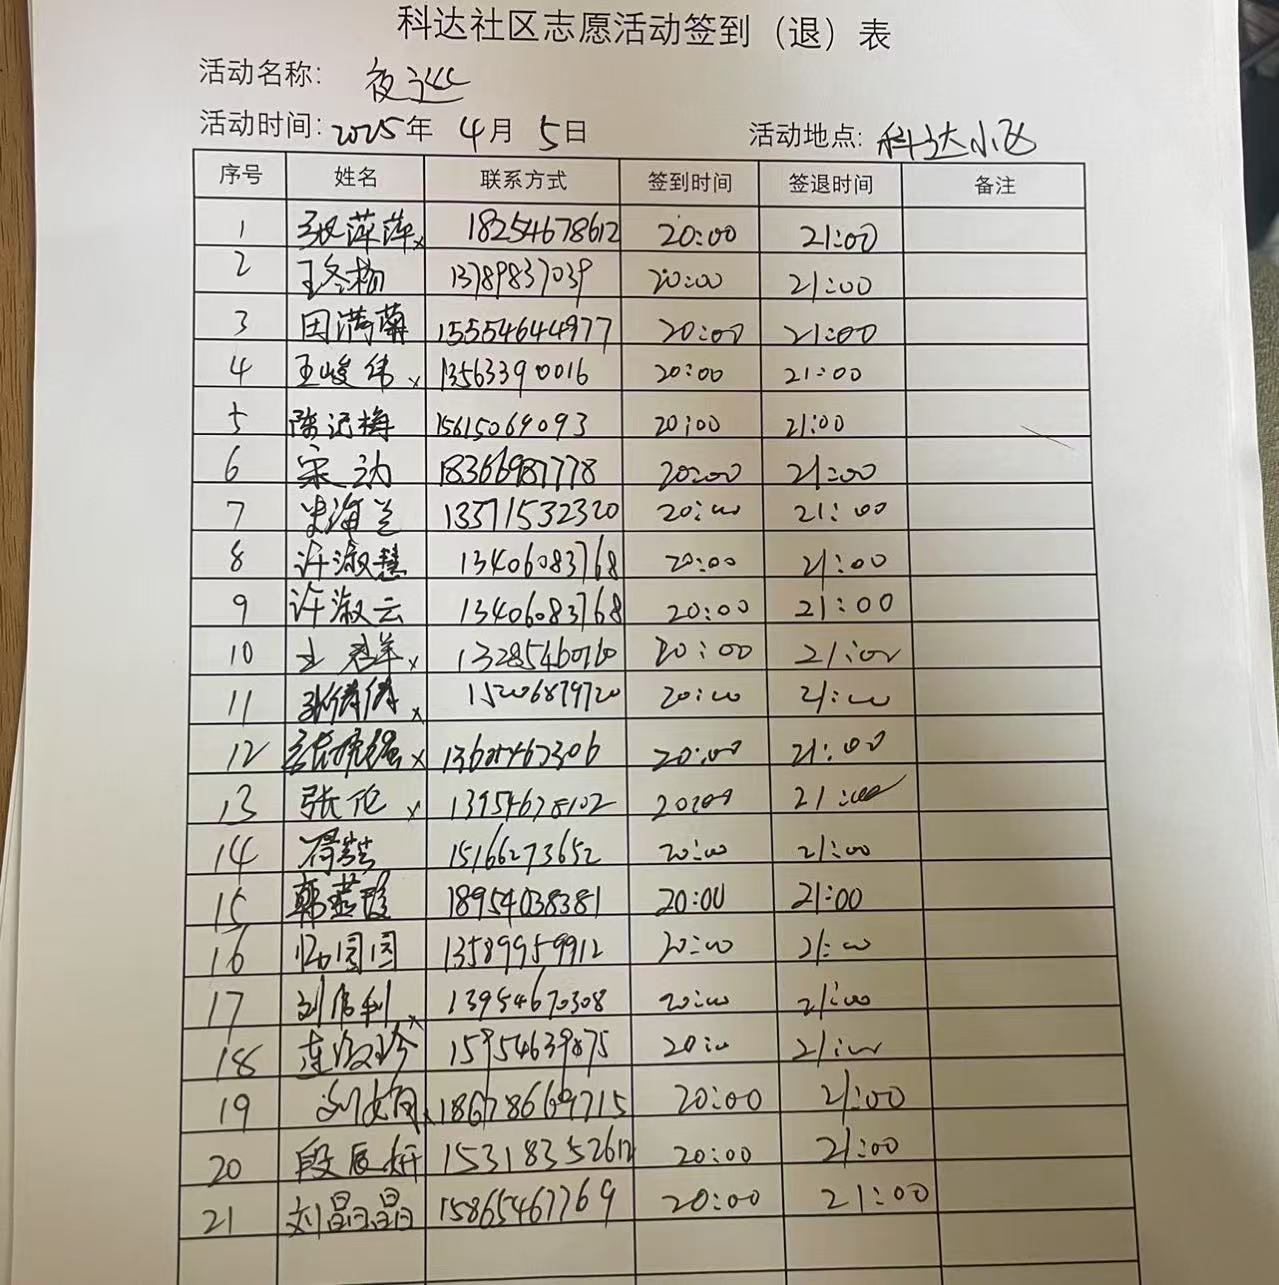 科达社区志愿活动签到（退）表
活动名称： 夜巡
活动时间：2025年 4月 5日 活动地点：科达小区
序号 姓名 联系方式 签到时间 签退时间 备注
1 张萍萍x 18254678612 20:00 21:00
2 王冬梅 13789837039 20:00 21:00
3 田满菊 15554644977 20:00 21:00
4 王峻伟x 13563390016 20:00 21:00
5 陈记梅 15615069093 20:00 21:00
6 宋 18366987778 20:00 21:00
7 海兰 13371532320 20:00 21:00
8 许淑慧 13406083768 20:00 21:00
9 许淑云 13406083768 20:00 21:00
10 x 13285460760 20:00 21:00
11 张倩倩x 15206879720 20:00 21:00
12 x 20:00 21:00
13 张伦x 13954678102 20:00 21:00
14 15166273652 20:00 21:00
15 韩燕霞 18954038381 20:00 21:00
16 13589959912 20:00 21:00
17 x 13954670308 20:00 21:00
18 15954639875 20:00 21:00
19 x 18678669715 20:00 21:00
20 段辰妍 15318352612 20:00 21:00
21 刘晶晶 15865467769 20:00 21:00